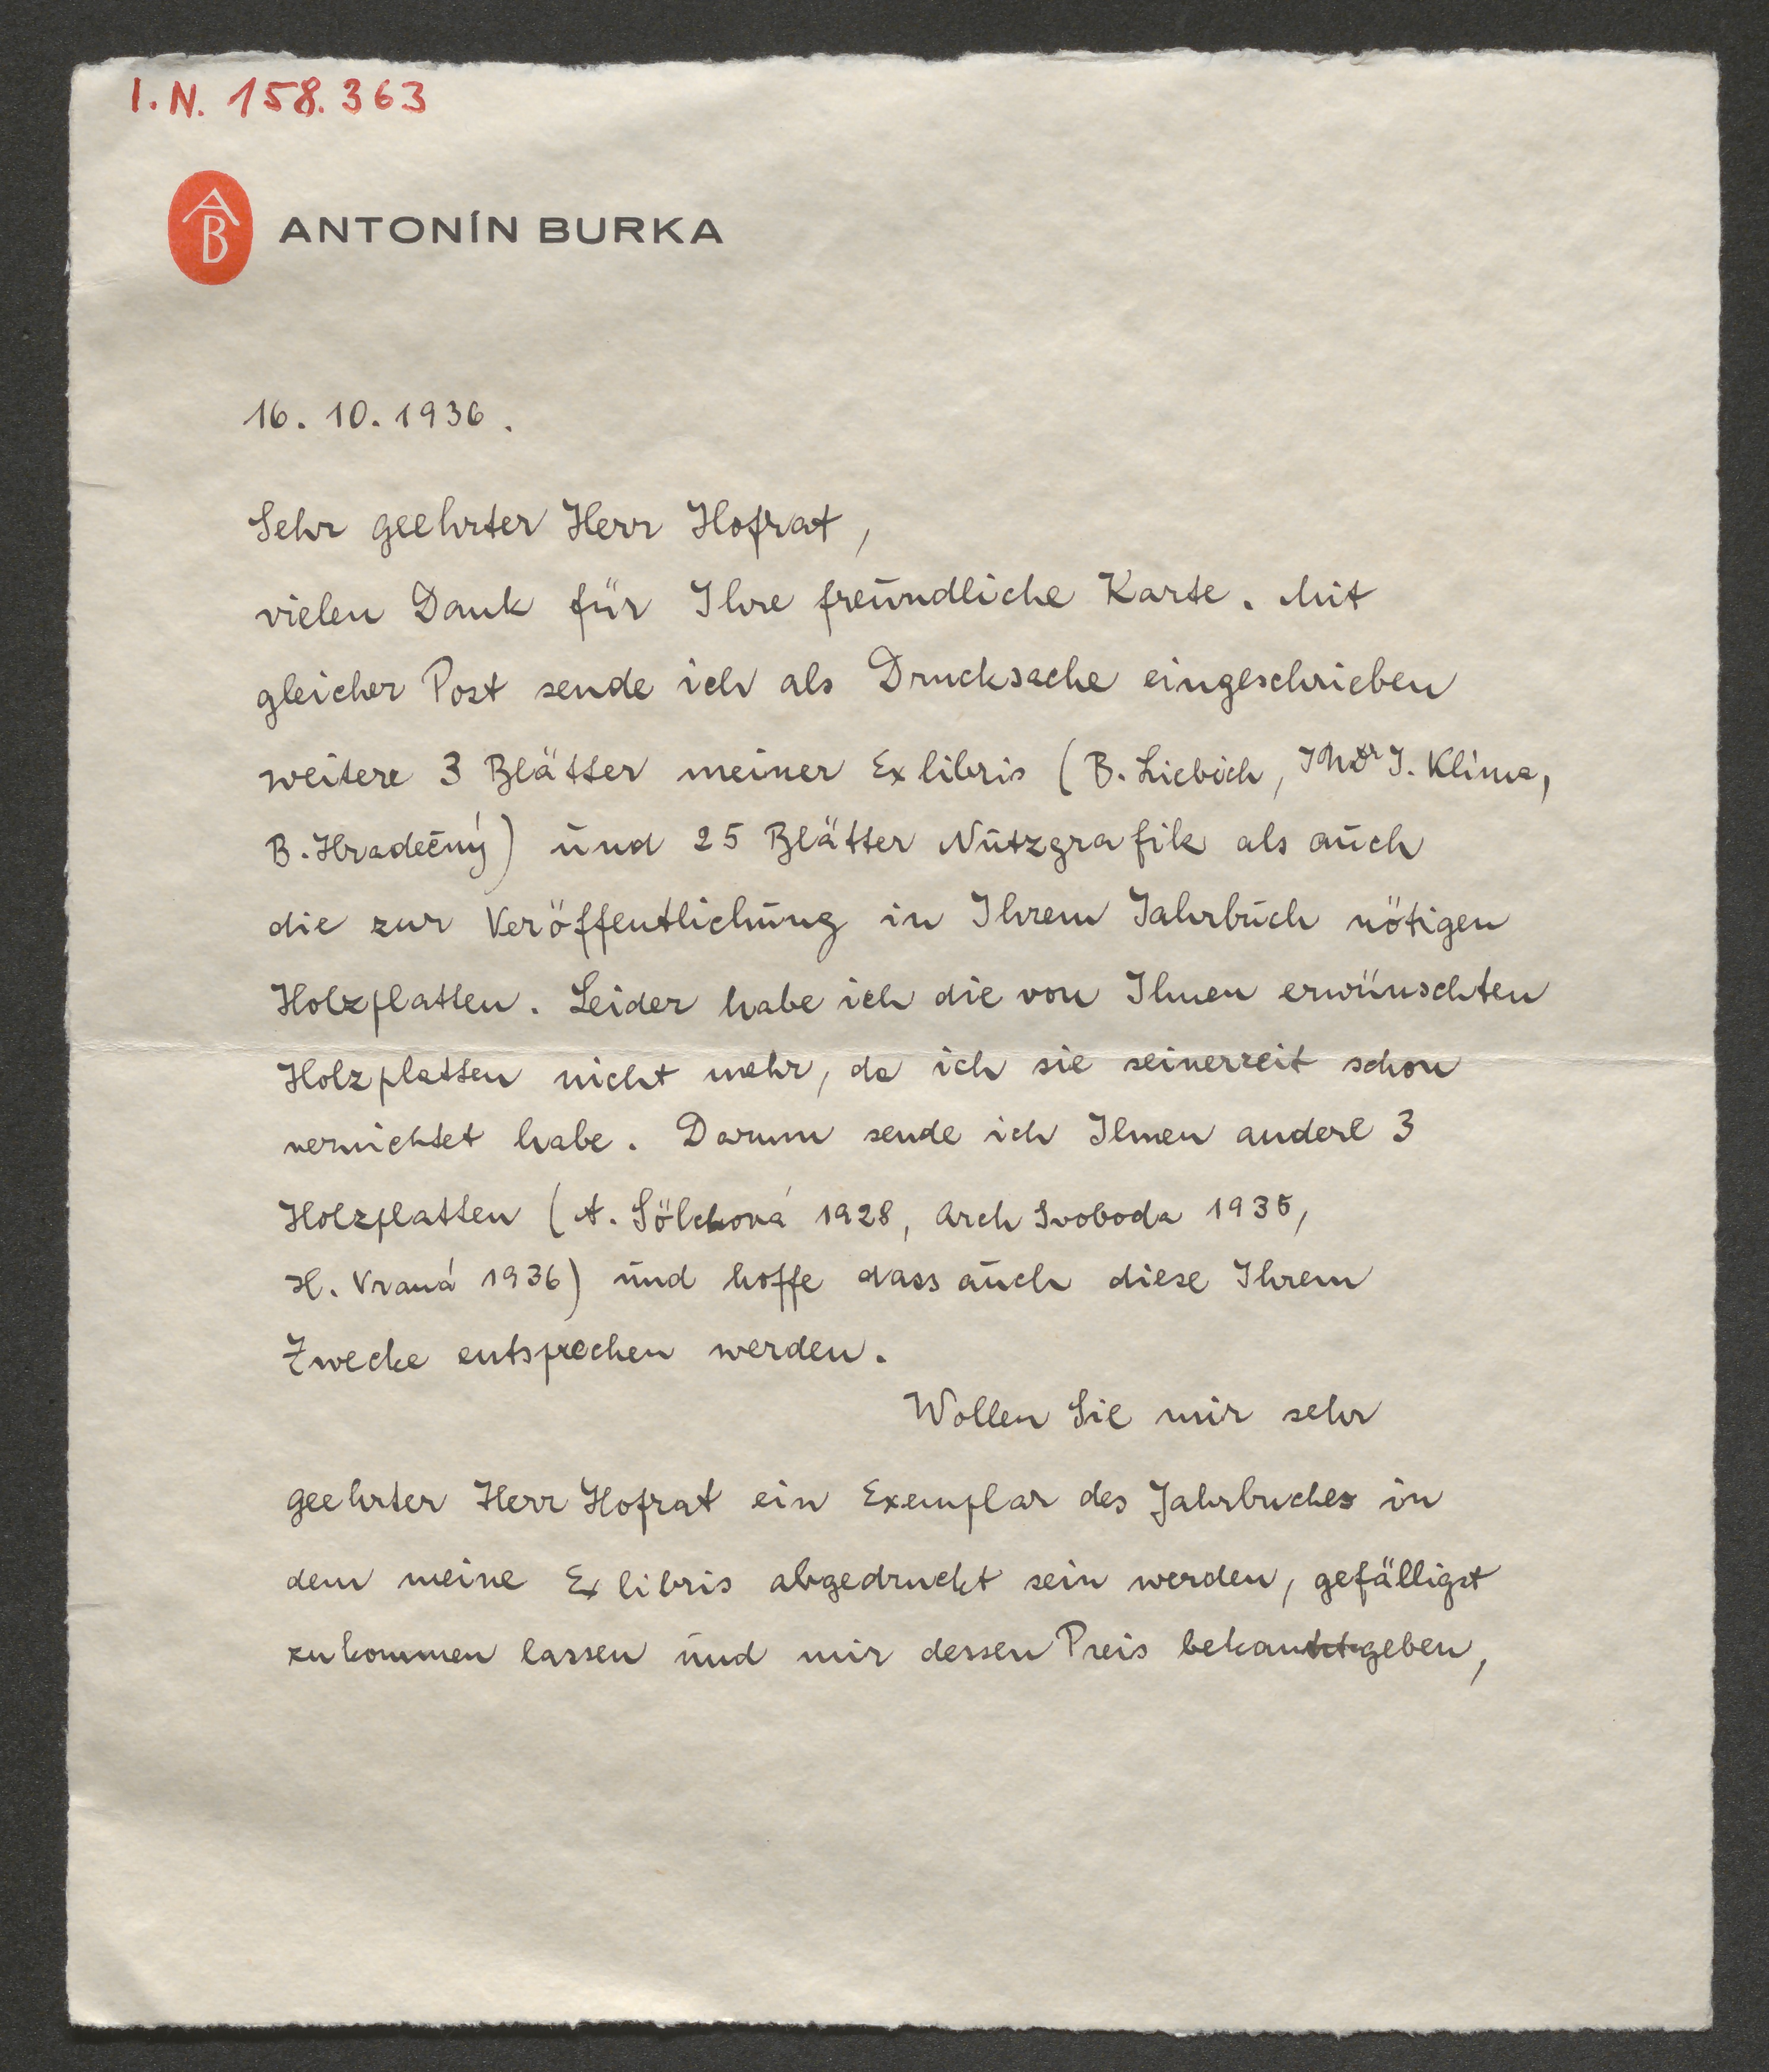 I.N. 158.363
AB ANTONÍN BURKA
16. 10. 1936.
Sehr geehrter Herr Hofrat,
vielen Dank für Ihre freundliche Karte. Mit
gleicher Post sende ich als Drucksache eingeschrieben
weitere 3 Blätter meiner Ex libris (B. Liebich, J. Klima,
B. Hradečný) und 25 Blätter Nutzgrafik als auch
die zur Veröffentlichung in Ihrem Jahrbuch nötigen
Holzplatten. Leider habe ich die von Ihnen erwünschten
Holzplatten nicht mehr, da ich sie seinerzeit schon
vernichtet habe. Darum sende ich Ihnen andere 3
Holzplatten (A. Sölchová 1928, Arch Svoboda 1935,
H. Vraná 1936) und hoffe dass auch diese Ihrem
Zwecke entsprechen werden.
Wollen Sie mir sehr
geehrter Herr Hofrat ein Exemplar des Jahrbuches in
dem meine Ex libris abgedruckt sein werden, gefälligst
zukommen lassen und mir dessen Preis bekanntgeben,